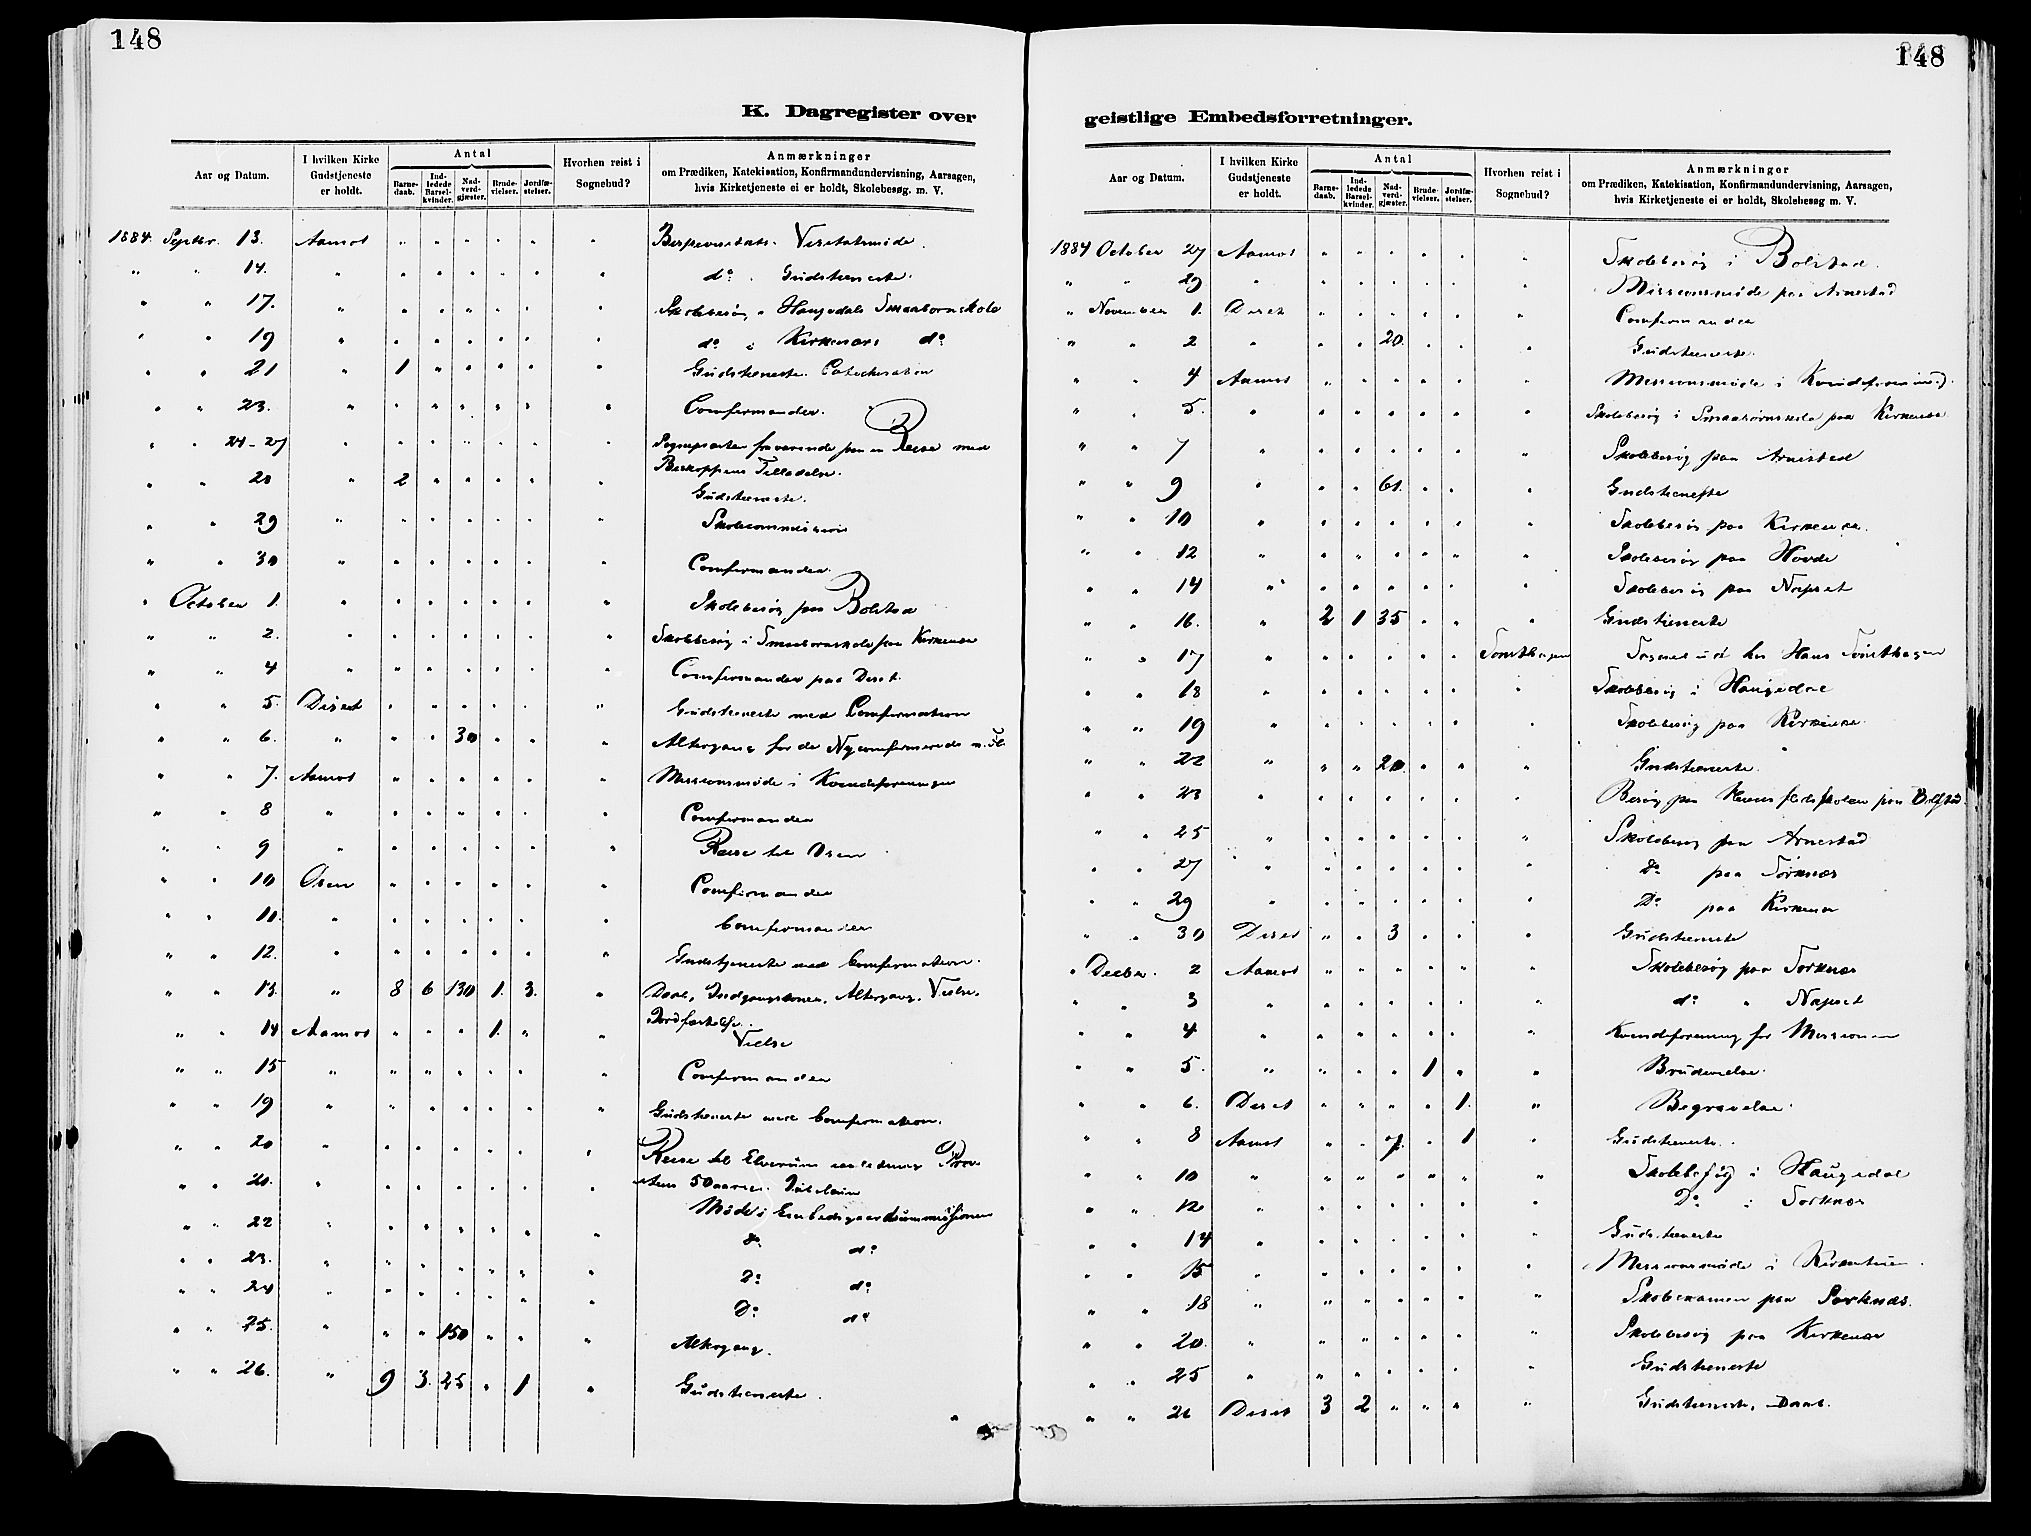 148
K. Dagregister over
Aar og Datum.
I hvilken Kirke Gudstjeneste er holdt.
Antal
Barne-daab.
Ind-ledede Barsel-kvinder.
Nad-verd-gjæster.
Brude-vielser.
Jordfæ-stelser.
Hvorhen reist i Sognebud?
Anmærkninger
om Prædiken, Katekisation, Konfirmandundervisning, Aarsagen, hvis Kirketjeneste ei er holdt, Skolebesøg m. V.
1884. Septbr. 13. Aamot " " " " " " Bispevisitats. Visitatsmøde.
" " 14. " " " " " " " do. Gudstieneste.
" " 17. " " " " " " " Skolebesøg i Haugedals Smaabornskole
" " 19 " " " " " " " do i Kirkenær do
" " 21 " 1 " " " " " Gudstieneste. Catechisation
" " 23. " " " " " " " Confirmander.
" " 24-27 " " " " " " Sognepresten fraværende paa en Reise med
Biskoppens Tilladelse.
" " 28 " 2 " " " " " Gudstieneste.
" " 29 " " " " " " " Skolecommission
" " 30 " " " " " " " Confirmander.
" October 1. " " " " " " " Skolebesøg paa Bolstad
" " 2. " " " " " " " Skolebesøg i Smaabornskole paa Kirkenær
" " 4 " " " " " " " Confirmander paa Deset.
" " 5. Deset " " " " " " Gudstieneste med Confirmation
" " 6. " " " 30 " " " Altergang for de Nyconfirmerede m. Fl.
" " 7. Aamot " " " " " " Missionsmøde i Kvindeforeningen
" " 8 " " " " " " " Confirmander
" " 9 " " " " " " " Reise til Osen
" " 10 Osen " " " " " " Confirmander
" " 11. " " " " " " " Confirmander
" " 12. " " " " " " " Gudstjeneste med Confirmation.
" " 13. " 8 6 130 1. 3. " Daab, Indgangskoner, Altergang, Vielse,
Jordfæstelse.
" " 14 Aamot " " " 1. " " Vielse
" " 15 " " " " " " " Confirmander
" " 19 " " " " " " " Gudstieneste med Confirmation.
" " 20 " " " " " " " Reise til Elverum
" " 21. " " " " " " " 50aars Jubelæum
" " 22 " " " " " " " Møde i Embedsgaardkommissionen
" " 23. " " " " " " " do do
" " 24 " " " " " " " Do do
Do do
" " 25. " " " 150 " " " Altergang.
" " 26. " 9 3. 25 " 1 " Gudstieneste.
148
geistlige Embedsforretninger.
Aar og Datum.
I hvilken Kirke Gudstjeneste er holdt.
Antal
Barne-daab.
Ind-ledede Barsel-kvinder.
Nad-verd-gjæster.
Brude-vielser.
Jordfæ-stelser.
Hvorhen reist i Sognebud?
Anmærkninger
om Prædiken, Katekisation, Konfirmandundervisning, Aarsagen, hvis Kirketjeneste ei er holdt, Skolebesøg m. V.
1884 October 27 Aamot " " " " " " Skolebesøg i Bolstad.
" " 29 " " " " " " " Missionsmøde paa Arnestad
" November 1. Deset " " " " " " Confirmander
" " 2 " " " 20. " " " Gudstieneste.
" " 4 Aamot " " " " " " Missionsmøde i Kvindeforening.
" " 5. " " " " " " " Skolebesøg i Smaabørnskole paa Kirkenær
" " 7 " " " " " " " Skolebesøg paa Arnestad
" " 9 " " " 61. " " " Gudstieneste
" " 10 " " " " " " " Skolebesøg paa Kirkenær.
" " 12 " " " " " " " Skolebesøg paa Hovde
" " 14 " " " " " " " Skolebesøg paa Næpset
" " 16. " 2 1 35 " " " Gudstieneste
" " 17 " " " " " " Tønsthagen Sognebud hos Hans Tønsthagen
" " 18 " " " " " " " Skolebesøg i Haugedal
" " 19 " " " " " " " Skolebesøg paa Kirkenær
" " 22 " " " 20. " " " Gudstieneste.
" " 23 " " " " " " " Besøg paa paa Bolstad.
" " 25 " " " " " " " Skolebesøg paa Arnestad
" " 27 " " " " " " " Do paa Sorknæs
" " 29 " " " " " " " Do paa Kirkenær
" " 30 Deset " " 3 " " " Gudstieneste
" Decbr. 2 Aamot " " " " " " Skolebesøg paa Sorknæs
" " 3 " " " " " " " do " Næpset
" " 4 " " " " " " " Kvindeforening for Missionen
" " 5. " " " " 1 " " Brudevielse.
" " 6. Deset " " " " 1. " Begravelse.
" " 8 Aamot " " 7. " 1 " Gudstieneste.
" " 10 " " " " " " " Skolebesøg i Haugedal
" " 12 " " " " " " " Do i Sorknæs
" " 14 " " " " " " " Gudstieneste
" " 15 " " " " " " " Missionsmøde i
" " 18 " " " " " " " Skoleexamen paa Sorknæs.
" " 20. " " " " " " " Skolebesøg paa Kirkenær
" " 25 " " " " " " " Gudstieneste
" " 26 Deset 3 2 " " " " Gudstieneste, Daab.